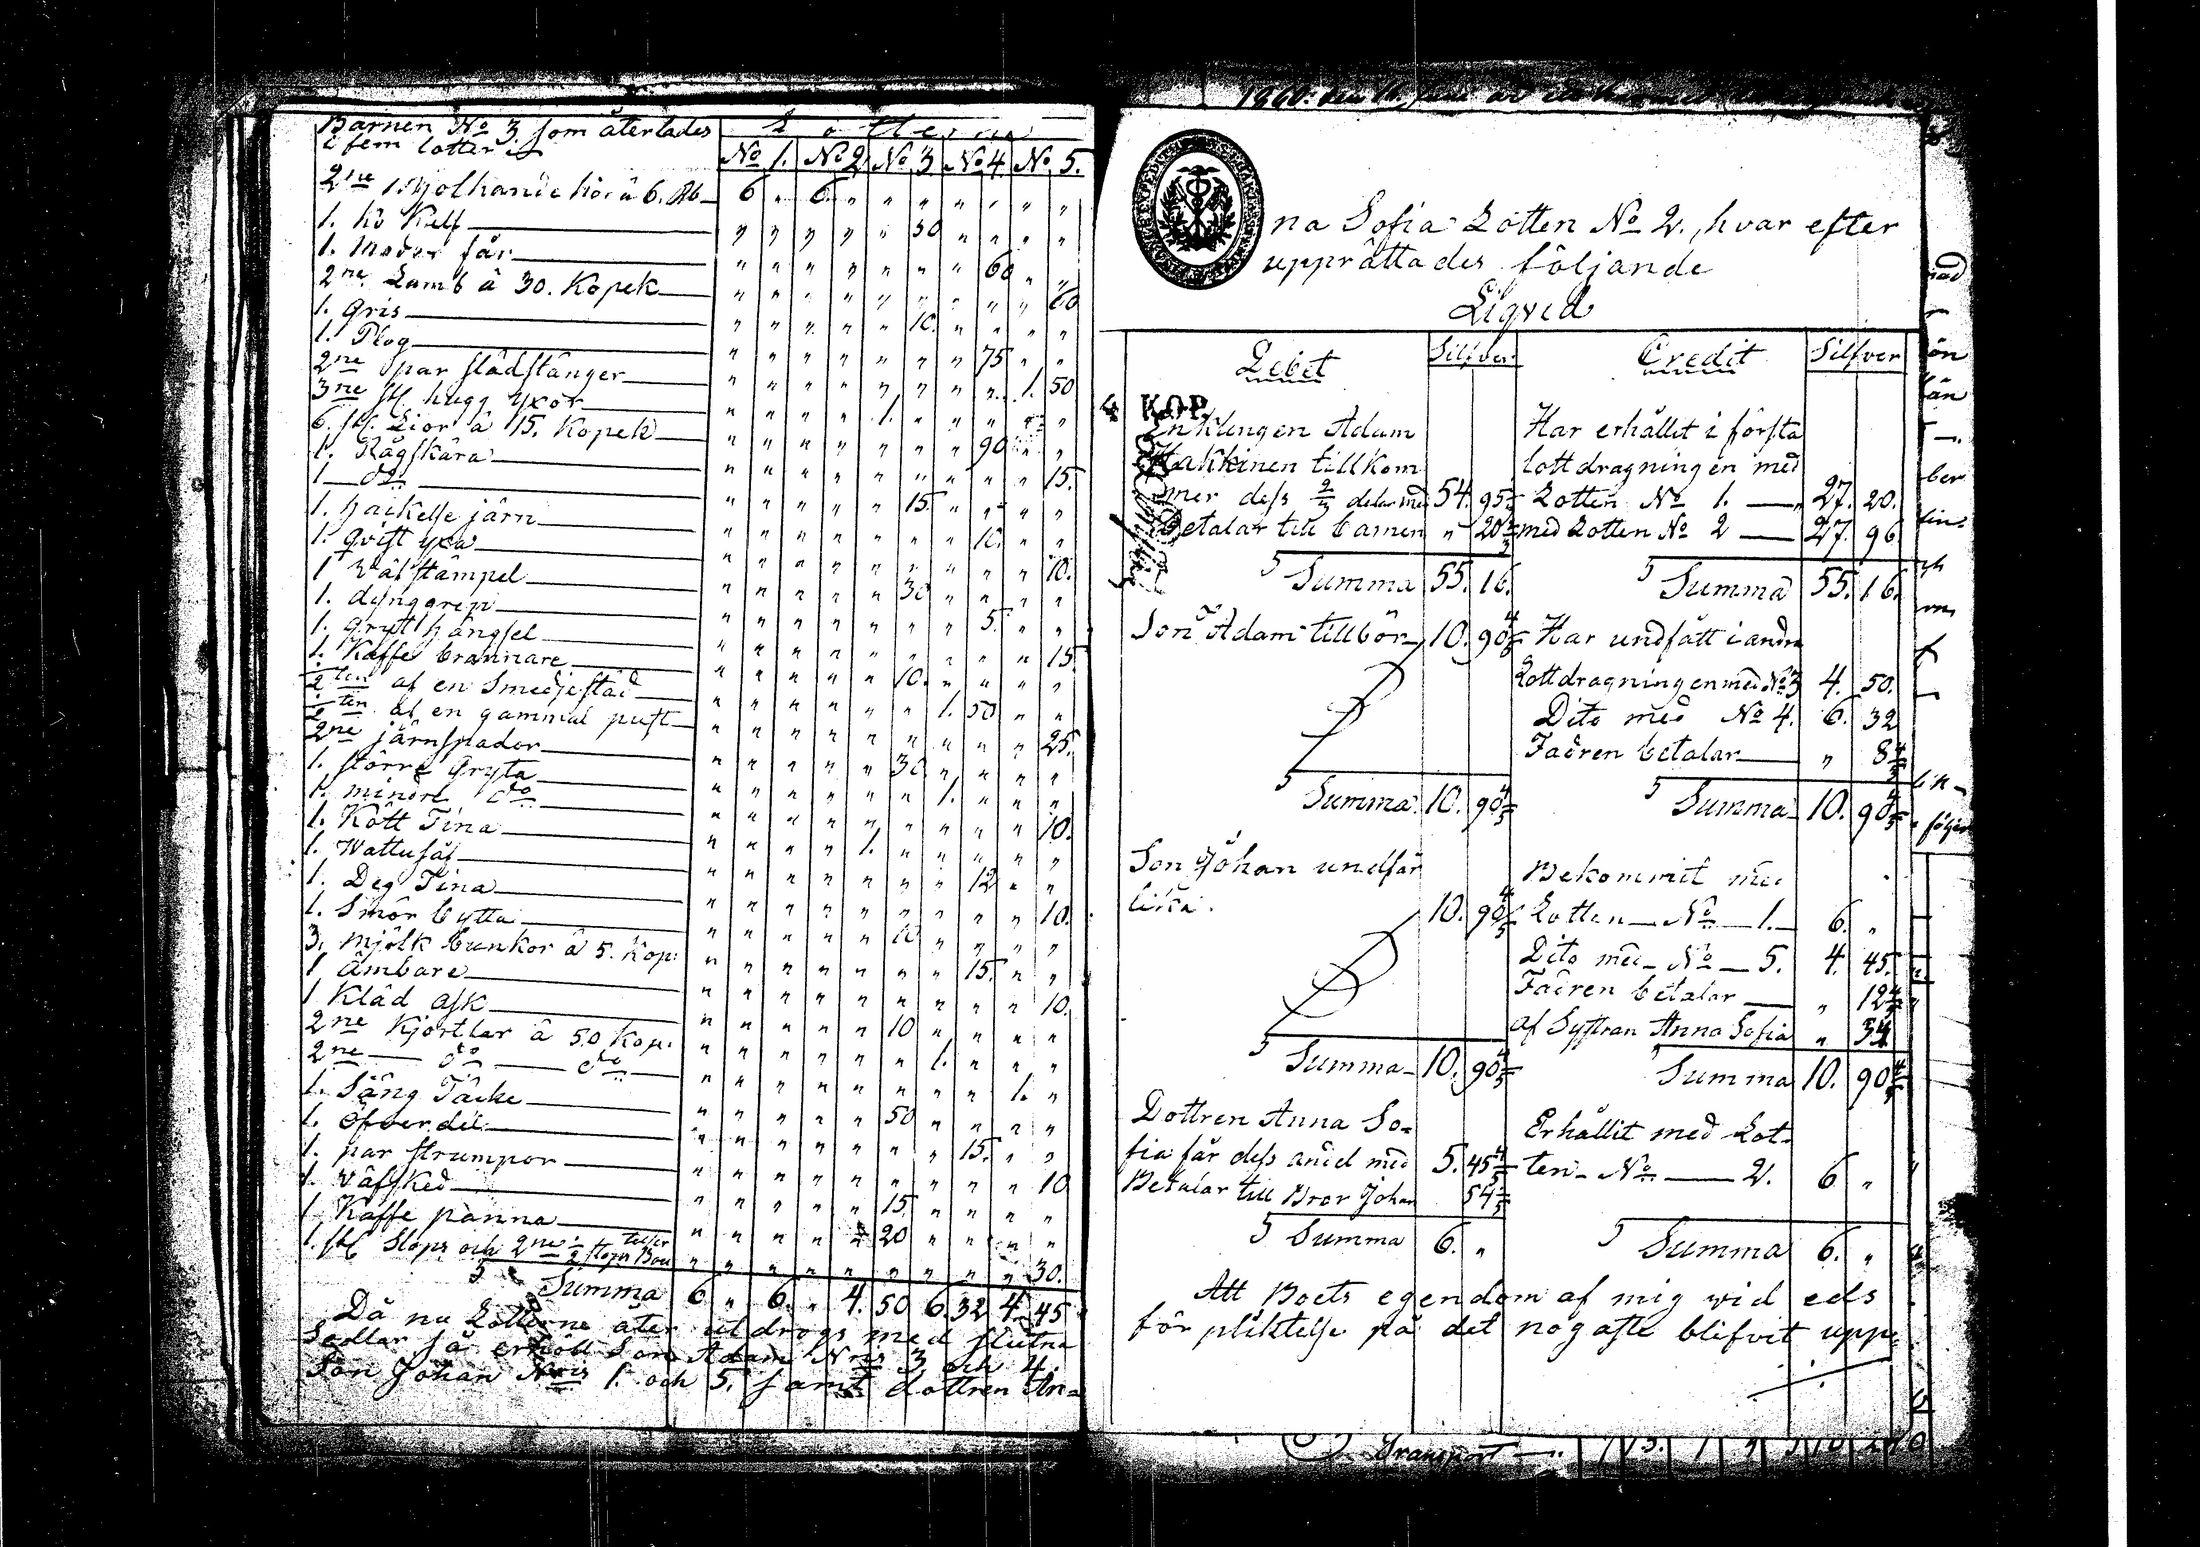 Barnen No 3 som återlades
i fem lotter
Lotterna
No 1. No 2 No 3 No 4. No 5.
2ne Mjölkande kor â 6. Rb 6 " 6. " " " " " " "
1. Ko Kelf " " " " " 50 " " " "
1. Moder får " " " " " " " 60 " "
2ne Lamb â 30. Kopek " " " " " " " " " 60
1. Gris " " " " " 10. " " " "
1. Plog " " " " " " " 75 " "
2ne par slädstänger " " " " " " " " 1. 50
3ne st. hugg yxor " " " " 1. " " " " "
6. st. Lior â 15. Kopek " " " " " " " 90 " "
1. Rågskära " " " " " " " " " 15.
1 do " " " " " 15. " " " "
1. hackelse järn " " " " " " " 10. " "
1. qvist yxa " " " " " " " " " 10.
1 stämpel " " " " " 30 " " " "
1. dynggrep " " " " " " " 5. " "
1. Gryt hängsel " " " " " " " " " 15
1. Kaffe brännare " " " " " 10. " " " "
½ten af en Smedjestäd " " " " " " 1. 50 " "
½ten af en gammal pust " " " " " " " " " 25.
2ne järnspador " " " " " 30 " " " "
1. större Gryta " " " " " " 1. " " "
1. mindre do " " " " " " " " " 10.
1. Kött Tina " " " " 1. " " " " "
1. Wattusåf " " " " " " " 12 " "
1. Deg Tina " " " " " " " " " 10.
1. Smör bytta " " " " " 10 " " " "
3. mjölk bunkor â 5. Kop: " " " " " " " 15. " "
1 ämbare " " " " " " " " " 10.
1 Kläd ask " " " " " 10 " " " "
2ne Kjortlar â 50 Kop. " " " " " " 1. " " "
2ne do do " " " " " " " " 1. "
1. Säng Täcke " " " " " 50 " " " "
1. Öfverdel " " " " " " " 15. " "
1. par strumpor " " " " " " " " " 10
1. väfsked " " " " " 15. " " " "
1 Kaffe panna " " " " " 20 " " " "
1. st. Stops och 2ne ½ stops " " " " " " " " " 30.
Summa 6 " 6. " 4. 50 6. 32 4. 45
Då nu Lotterne åter utdrogs med slutna
Sedlar så erhöll Son Adam Nris 3 och 4.
Son Johan Nris 1. och 5. samt dottren An-
na Sofia Lotten No 2., hvar efter
upprättades följande
Liqvid
Debet Silfver Credit Silfver
4 KOP.
Enklingen Adam
Hakkinen tillkom-
mer dess ⅔ delar med 54. 95⅘
Betalar till barnen " 20⅕
Summa 55. 16.
Har erhållit i första
lottdragningen med
Lotten No 1. 27. 20.
med Lotten No 2 27. 96
Summa 55. 16.
Son Adam tillbör 10. 90⅘
Summa 10. 90⅘
Har undfått i andra
Lottdragningen med No 3 4. 50.
Dito med No 4. 6. 32
Fadren betalar " 8⅘
Summa 10. 90⅘
Son Johan undfår
lika. 10. 90⅘
Summa 10. 90⅘
Bekommit med
Lotten No 1. 6. "
Dito med No 5. 4. 45.
Fadren betalar " 12
af Systran Anna Sofia "
Summa 10. 90⅘
Dottren Anna So-
fia får dess andel med 5. 45
Betalar till Bror Johan 54
Summa 6. "
Erhållit med Lot-
ten No 2. 6 "
Summa 6. "
Att Boets egendom af mig vid eds
för pliktelse på det nogaste blifvit uppe
Transport